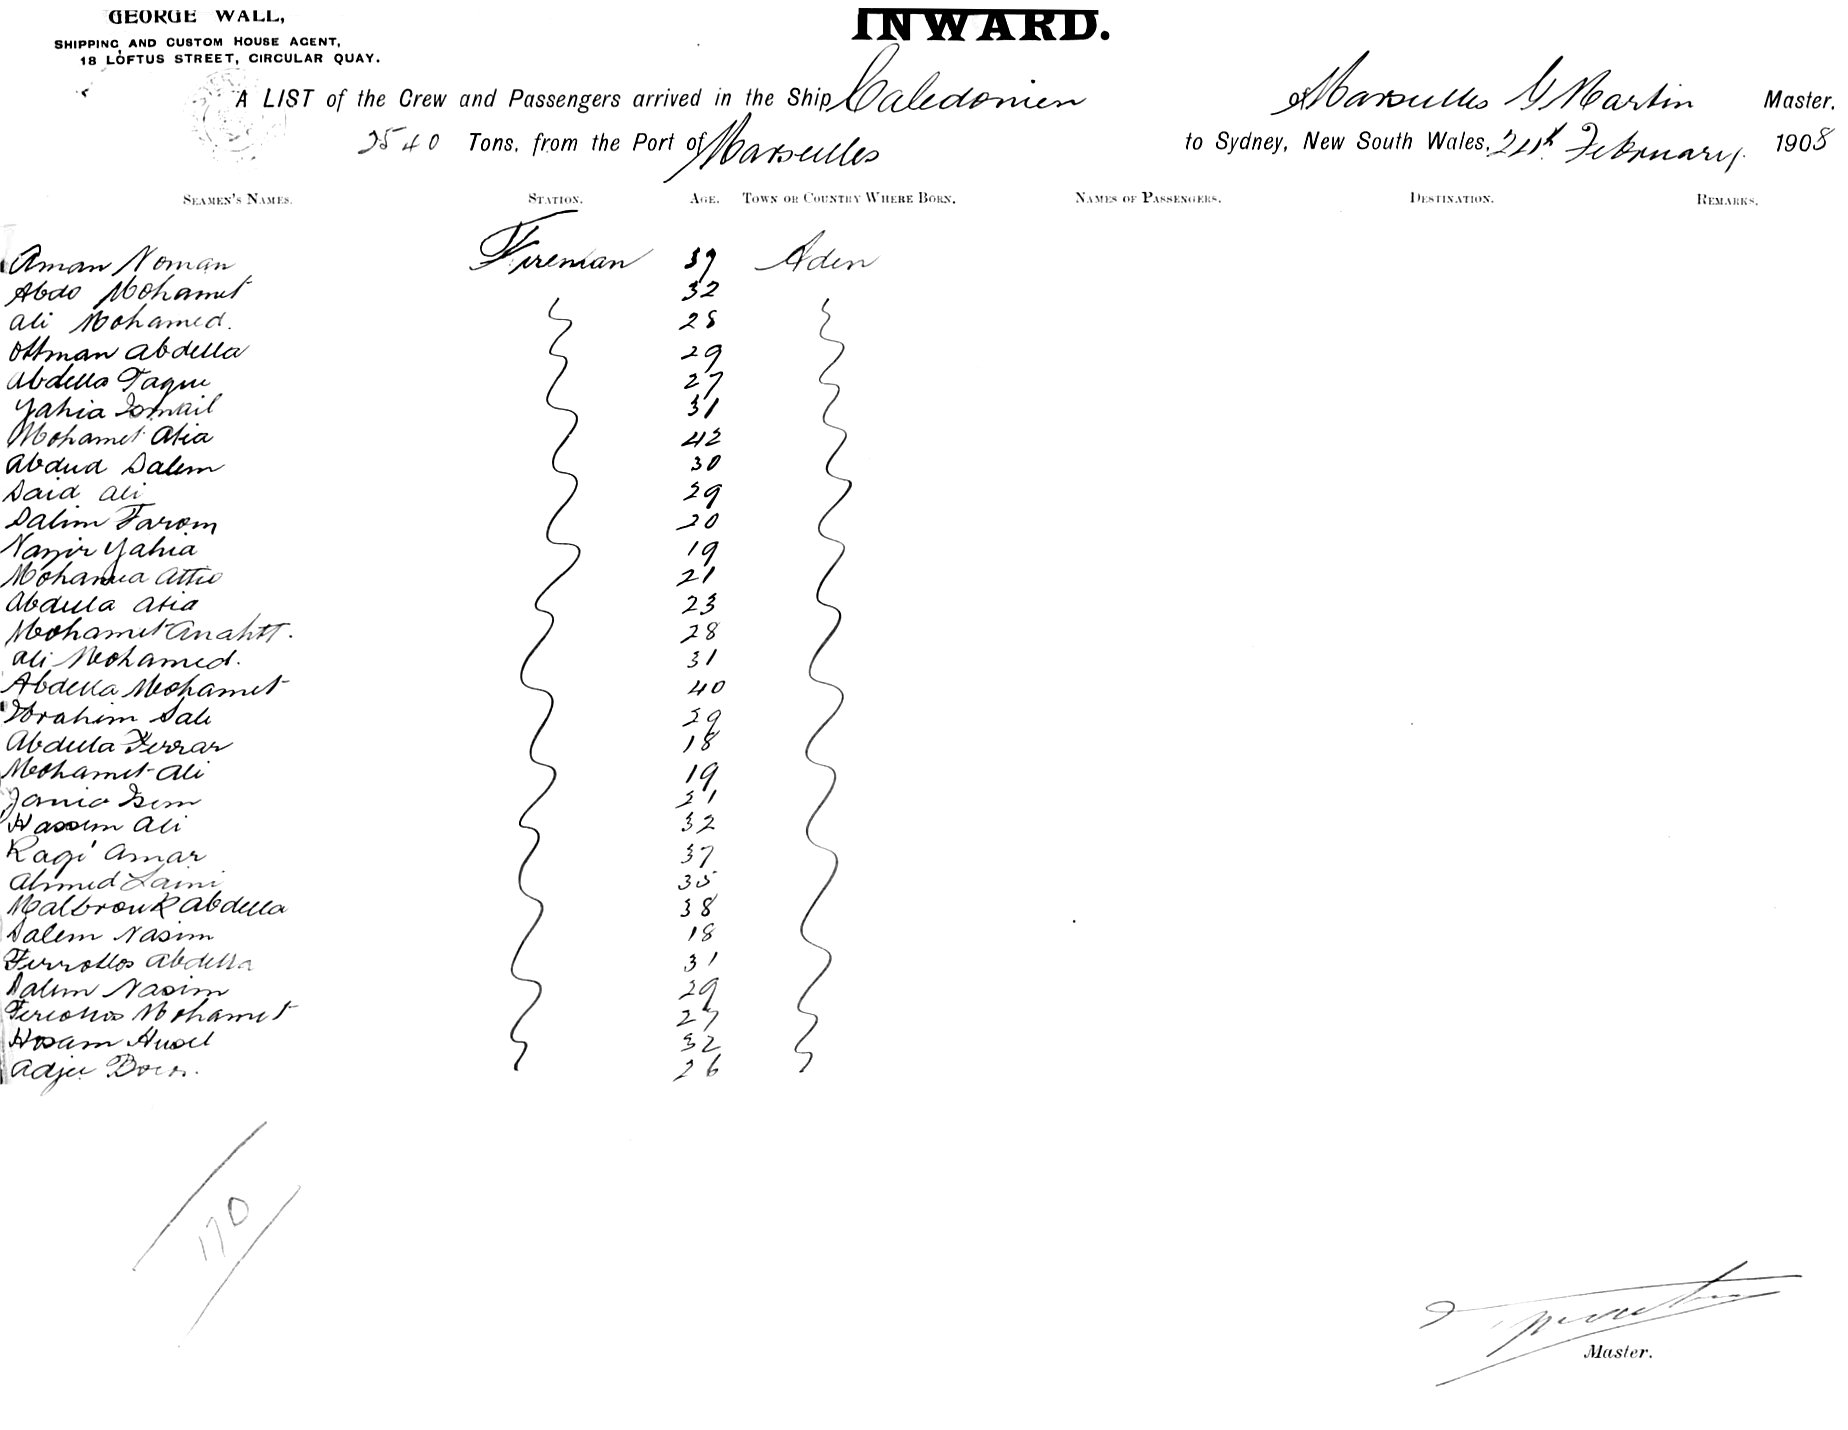 GEORGE WALL,
SHIPPING AND CUSTOM HOUSE AGENT,
18 LOFTUS STREET, CIRCULAR QUAY.
INWARD.
A LIST of the Crew and Passengers arrived in the Ship Caledonien of Marseilles G Martin Master.
2540 Tons, from the Port of Marseilles to Sydney, New South Wales, February 1908
SEAMEN'S NAMES. STATION. AGE. TOWN OR COUNTRY WHERE BORN. NAMES OF PASSENGERS. DESTINATION. REMARKS.
Aman Noman Fireman 39 Aden
Abdo Mohamet 32
Ali Mohamed. 28
Ottman Abdella 29
Abdella Taque 27
Yahia Ismail 31
Mohamet Atia 42
Abdud Salem 30
Said Ali 29
Salim Farom 20
Nassir Yahia 19
Attio 21
Abdella Atia 23
Mohamet 28
Ali Mohamed. 31
Abdella Mohamet 40
Ibrahim Sale 29
Abdella Ferrar 18
Mohamet Ali 19
21
Hassem Ali 32
Ragi Amar 37
Ahmed Laini 35
Malbrouk Abdella 38
Salem Nasim 18
Abdella 31
Salem Nasim 29
Mohamet 27
Hosam 32
26
170
Master.